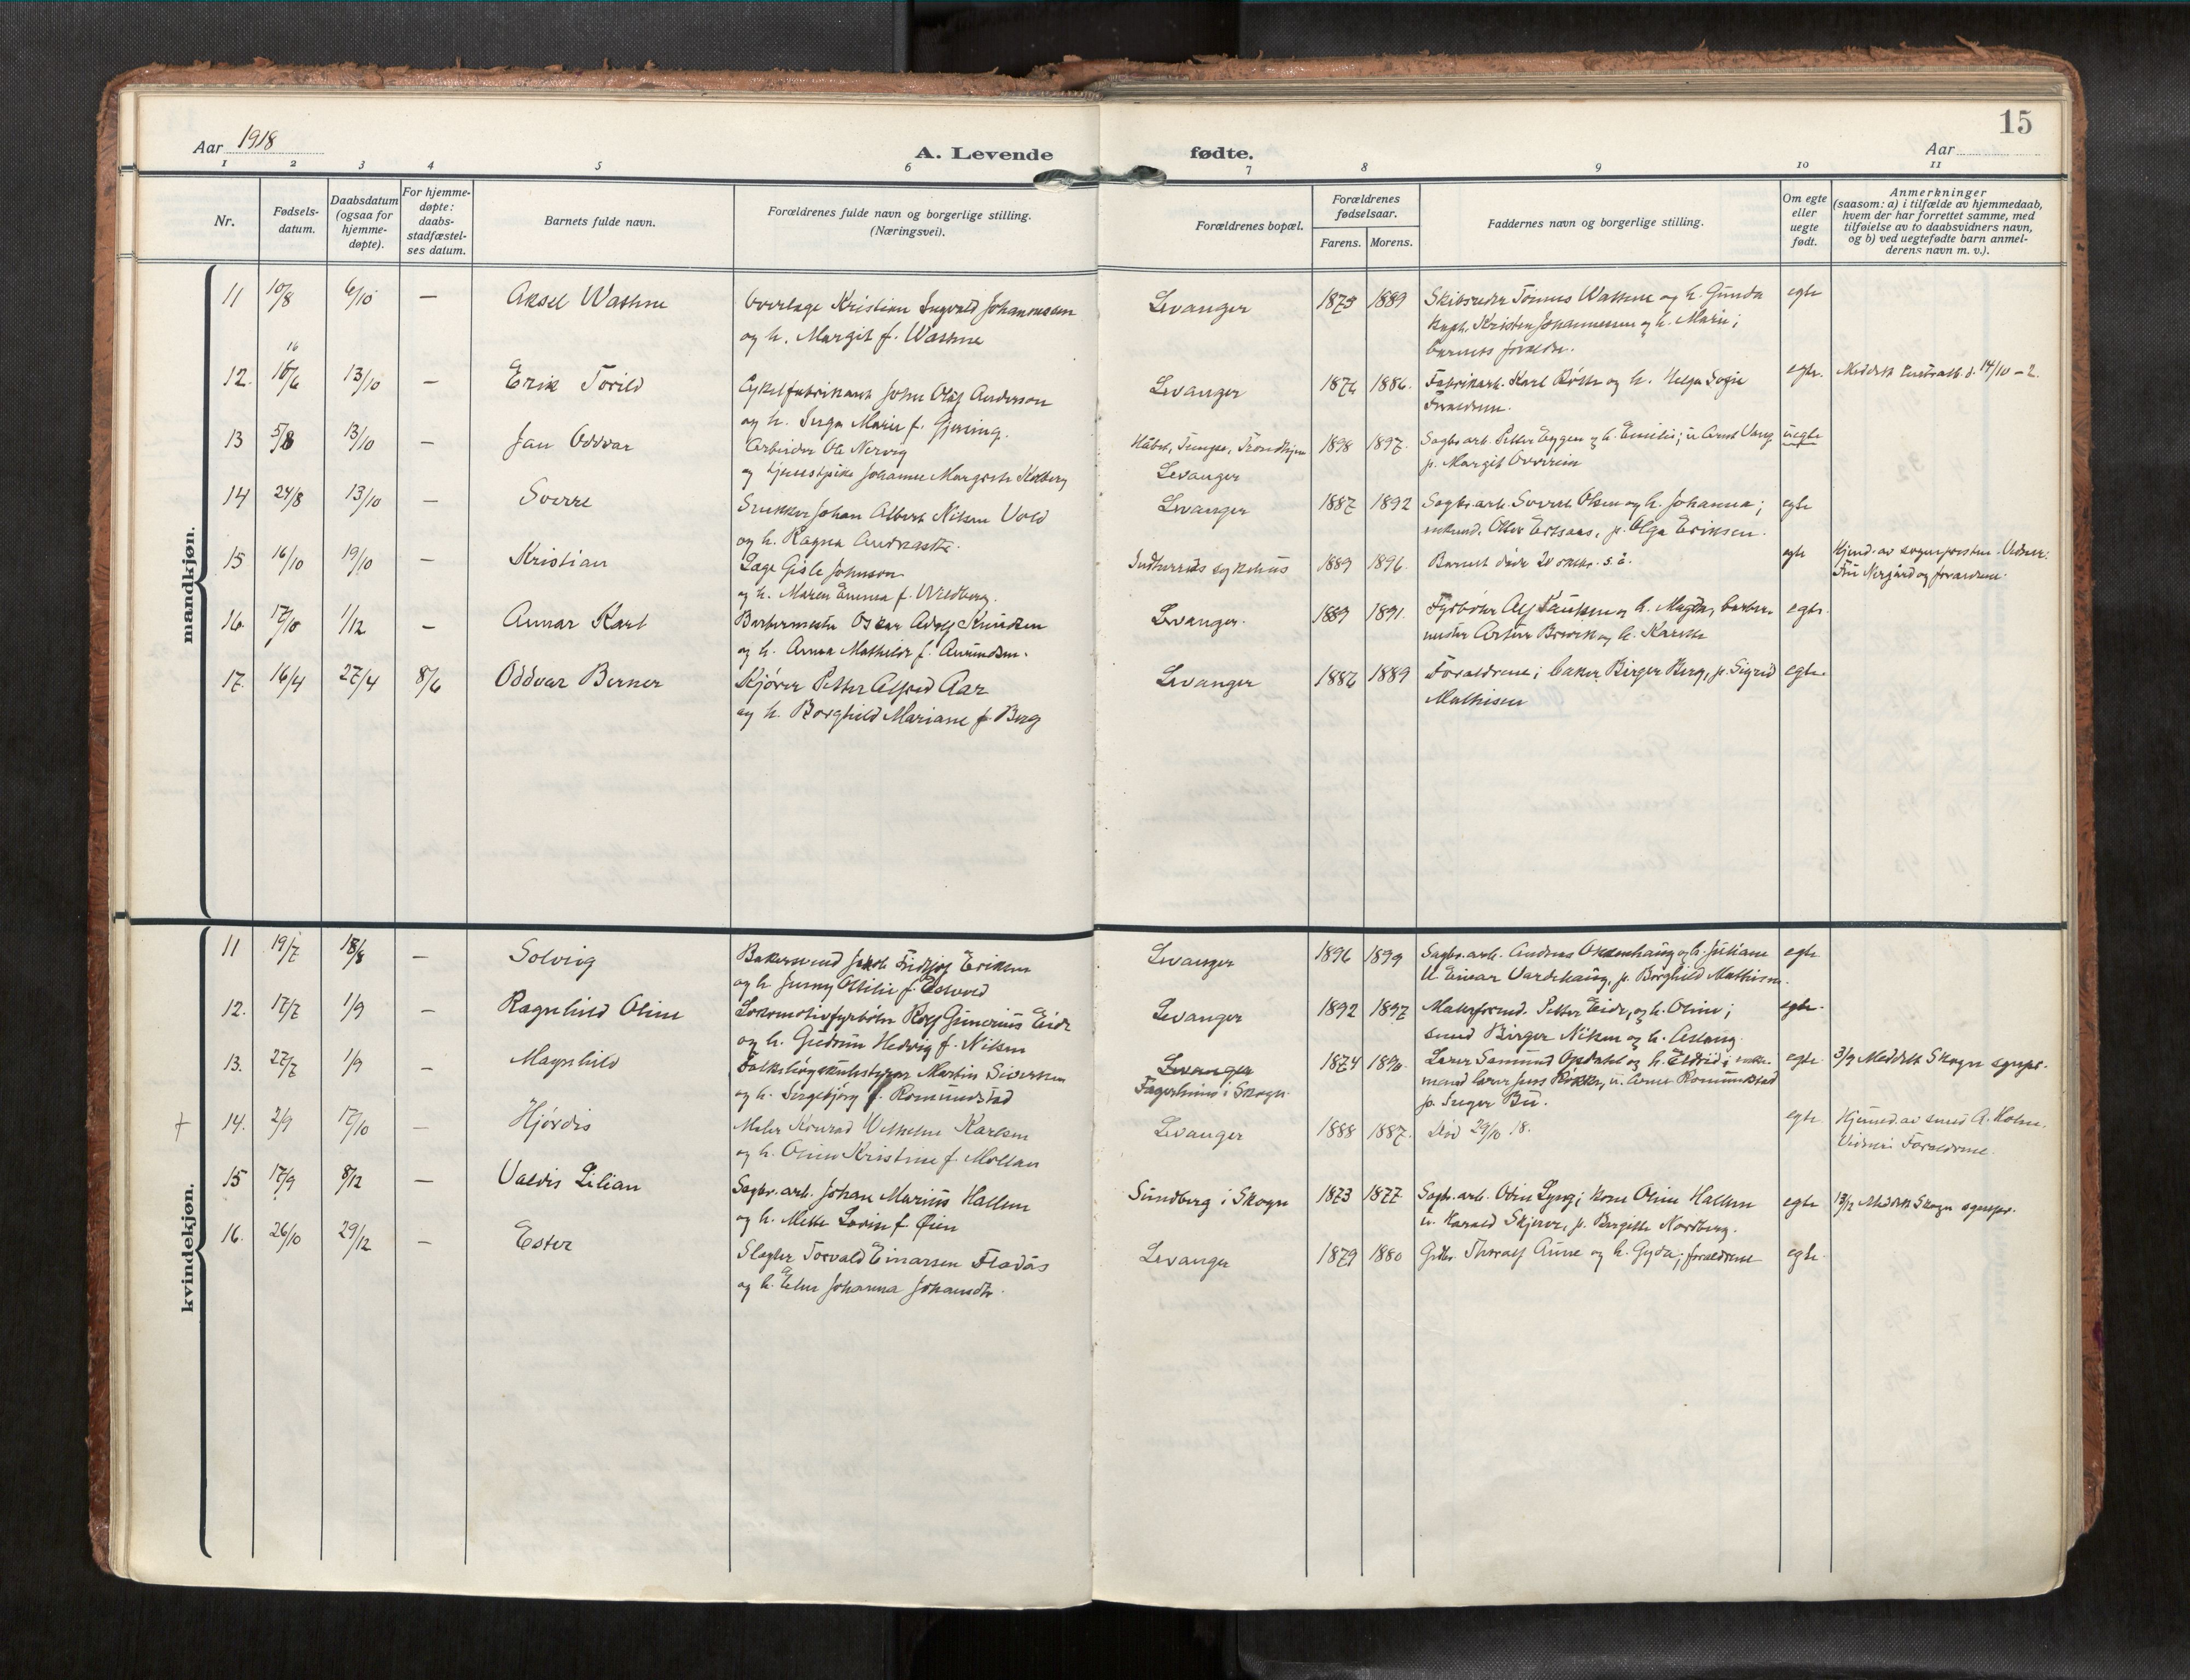 15
Aar 1918
A. Levende fødte.
Aar
1 2 3 4 5 6 7 8 9 10 11
Nr.
Fødsels-
datum.
Daabsdatum
(ogsaa for
hjemme-
døpte).
For hjemme-
døpte:
daabs-
stadfæstel-
ses datum.
Barnets fulde navn.
Forældrenes fulde navn og borgerlige stilling.
(Næringsvei).
Forældrenes bopæl.
Forældrenes
fødselsaar.
Farens. Morens.
Faddernes navn og borgerlige stilling.
Om egte
eller
uegte
født.
Anmerkninger
(saasom: a) i tilfælde av hjemmedaab,
hvem der har forrettet samme, med
tilføielse av to daabsvidners navn,
og b) ved uegtefødte barn anmel-
derens navn m. v.).
mandkjøn.
11 10/8 6/10 — Aksel Wathne
Overlæge Kristian Ingvald Johannessen
og h. Margit f. Wathne
Levanger 1875 1889
Skibsreder Tønnes Wathne og h. Gunda
Kapt. Kristen Johannessen og h. Marie;
barnets forældre.
egte
12. 16/6 13/10 — Erik Torild
16
Cykelfabrikant John Olaf Anderson
og h. Inga Marie f. Gjening.
Levanger 1876 1886.
Fabrikarb. Karl og h. Helga Sofie
Forældrene.
egte. Meddelt 14/10 - 2.
13 5/8 13/10 — Jan Oddvar
Arbeider Ole Nervig
og tjenestpike Johanne Margrete Kolberg
Tempe, Trondhjem
Levanger
1898 1897.
Sagbr. arb. Petter Eggen og h. Emilie; u. Arnt Vang
p. Margit Overrein
uegte
14 24/8 13/10 — Sverre
Snekker Johan Albert Nilsen Vold
og h. Ragna Andreasdtr.
Levanger 1887 1892
Sagbr. arb. Sverre Olsen og h. Johanna;
enkemd. Ertsaas, p. Olga Eriksen.
egte
15 16/10 19/10 — Kristian
Læge Gisle Johnson
og h. Maren Emma f. Wildberg.
Indherreds sykehus 1889 1896.
Barnet døde 20 oktbr. s. å.
egte
Hjemd. av sognepresten. Vidner:
Fru Nergård og forældrene.
16. 17/10 1/12 — Annar Karl
Barbermester Oskar Adolf Knudsen
og h. Anna Mathilde f. Amundsen.
Levanger. 1889 1891.
Fyrbøter Alf Paulsen og h. Magda, barber-
mester Artur og h. Karette
egte.
17. 16/4 27/4 8/6 Oddvar Berner
Kjører Petter Alfred Aar
og h. Borghild Mariane f. Berg
Levanger 1886 1889
Forældrene; baker Birger Berg, p. Sigrid
Mathisen
egte.
kvindekjøn.
11 19/7 18/8 — Solveig
Bakersvend Jakob Fridtjof Eriksen
og h. Jenny Ottilie f.
Levanger 1896 1899
Sagbr. arb. Andreas og h. Juliane
U. Einar Vardehaug, p. Borghild Mathisen.
egte
12. 17/7 1/9 — Ragnhild Oline
Lokomotivfyrbøter Rolf Gunerius Eide
og h. Gudrun Hedvig f. Nilsen
Levanger 1892 1897
Petter Eide, og h. Oline;
smed Birger Nilsen og h. Aslaug.
egte.
13. 27/7 1/9 — Magnhild
Folkehøgskulestyrar Martin Sivertsen
og h. Ingebjørg f. Romundstad
Levanger
Fagerheim i Skogn.
1874 1890.
Lærer Samund Opdahl og h. Eldrid; enke-
mand lærer Jens Røkke, u. Arne Romundstad
p. Inger Bu.
egte. 3/9 Meddelt Skogn sognepr.
+ 14. 2/9 17/10 — Hjørdis
Maler Konrad Wilhelm Karlsen
og h. Oline Kristine f. Mollan
Levanger 1888 1887.
Død 29/10 18.
egte.
Hjemd. av smed A. Holm.
Vidner: Forældrene.
15 17/9 8/12 — Valdis Lilian
Sagbr. arb. Johan Marius Hallem
og h. Mette Lovise f. Øien
Sundberg i Skogn 1873 1877
Sagbr. arb. Odin Lyng; kone Oline Hallem
u. Harald Skjerve, p. Birgitte Nordberg.
egte 13/12 Meddelt Skogn sognepr.
16. 26/10 29/12 — Ester
Slagter Torvald Einarsen Flaaås
og h. Elen Johanna Johansdtr.
Levanger 1879 1880
Gdbr. Thoralf Aune og h. Gyda; forældrene
egte.